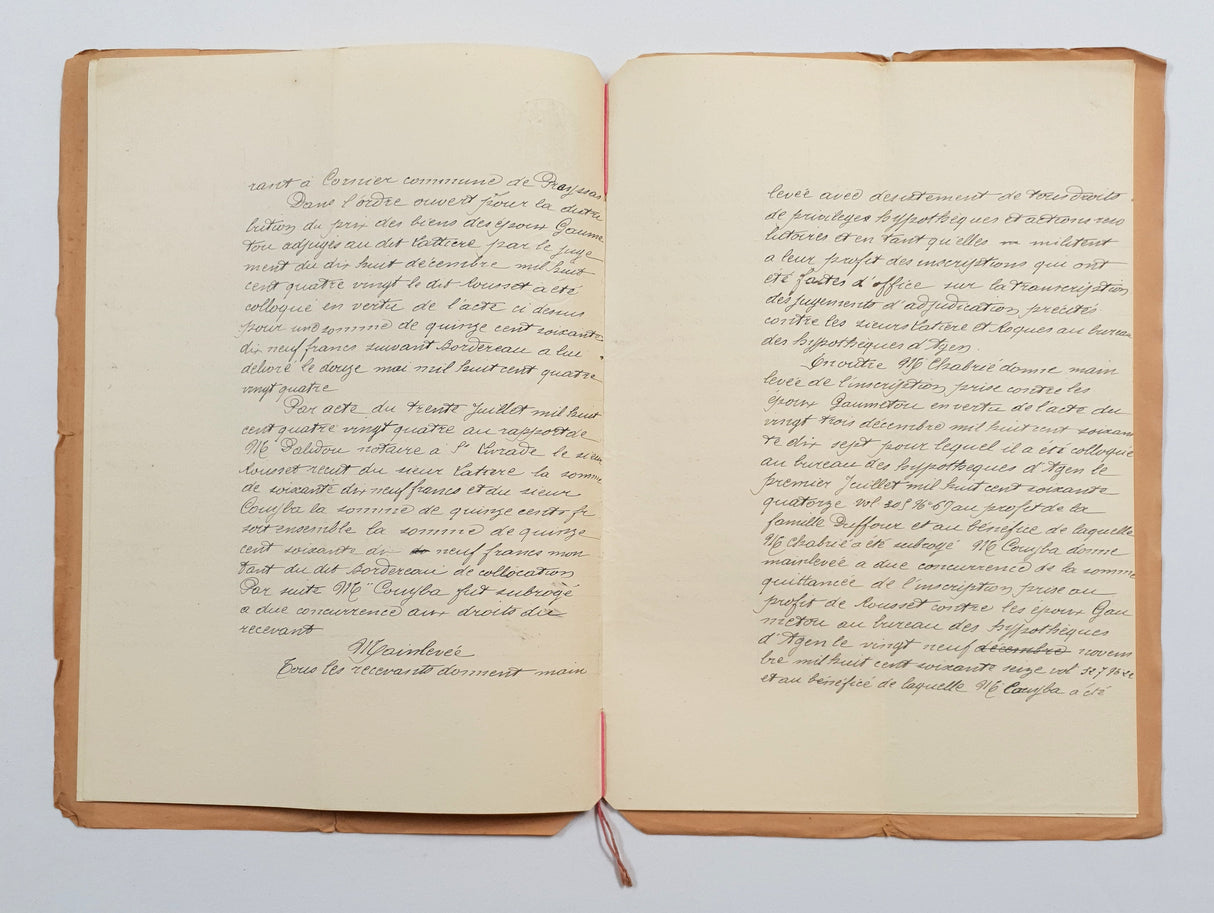 rant à Cornier commune de Prayssas
Dans l'ordre ouvert pour la distri
bution du prix des biens des époux Gaume
tou adjugés au dit Latière par le juge
ment du dix huit décembre mil huit
cent quatre vingt le dit Rousset a été
colloqué en vertu de l'acte ci dessus
pour une somme de quinze cent soixante
dix neuf francs suivant Bordereau a lui
délivré le douze mai mil huit cent quatre
vingt quatre
Par acte du trente Juillet mil huit
cent quatre vingt quatre au rapport de
Me Palidou notaire à St Livrade le sieur
Rousset recut du sieur Latiere la somme
de soixante dix neuf francs et du sieur
Couyba la somme de quinze cents f
soit ensemble la somme de quinze
cent soixante dix neuf francs mon
tant du dit Bordereau de collocation
Par suite Mr Couyba fut subrogé
a due concurrence aux droits du
recevant
Mainlevée
Tous les recevants donnent main
levée avec desistement de tous droits
de privileges hypothèques et actions reso
lutoires et en tant qu'elles militent
a leur profit des inscriptions qui ont
été faites d'office sur la transcription
des jugements d'adjudication precités
contre les sieurs Latière et Roques au bureau
des hypothèques d'Agen.
En outre Mr Chabrié donne main
levée de l'inscription prise contre les
époux Gaumetou en vertu de l'acte du
vingt trois décembre mil huit cent soixan
te dix sept pour lequel il a été colloqué
au bureau des hypothèques d'Agen le
premier Juillet mil huit cent soixante
quatorze vol au profit de la
famille Duffour et au bénéfice de laquelle
Mr Chabrié a été subrogé Mr Couyba donne
mainlevée a due concurrence de la somme
quittancée de l'inscription prise au
profit de Rousset contre les époux Gau
metou au bureau des hypothèques
d'Agen le vingt neuf décembre novem
bre mil huit cent soixante seize vol
et au bénéfice de laquelle Mr Couyba a été